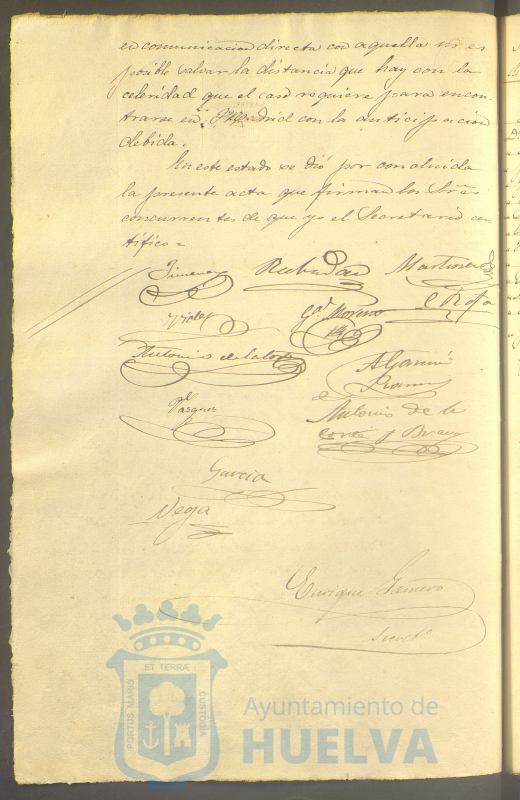 en comunicacion directa con aquella no es
posible salvar la distancia que hay con la
celeridad que el caso requiere para encon-
trarse en Madrid con la anticipacion
debida.
En este estado se dió por concluida
la presente acta que firman los Sres.
concurrentes de que yo el Secretario cer-
tifico =
Jimenez
Martinez
Gd. Moreno
Antonio de la Torre
A Garcia
Ramos
Vazquez
Antonio de la
Corte y Bravo
Garcia
Vega
Enrique Gamero
Srect.
ET TERRÆ
PORTUS MARIS
CUSTODIA
Ayuntamiento de
HUELVA